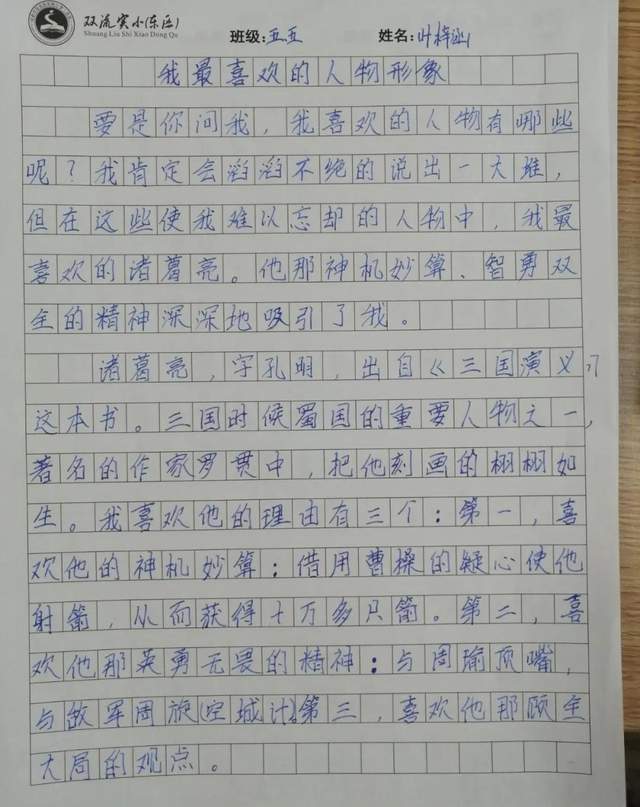 双流实小(东区)
Shuang Liu Shi Xiao Dong Qu
班级:五五 姓名:叶梓
我最喜欢的人物形象
要是你问我，我喜欢的人物有哪些
呢？我肯定会滔滔不绝的说出一大堆，
但在这些使我难以忘却的人物中，我最
喜欢的诸葛亮。他那神机妙算、智勇双
全的精神深深地吸引了我。
诸葛亮，字孔明，出自《三国演义》
这本书。三国时候蜀国的重要人物之一，
著名的作家罗贯中，把他刻画的栩栩如
生。我喜欢他的理由有三个：第一，喜
欢他的神机妙算：借用曹操的疑心使他
射箭，从而获得十万多只箭。第二，喜
欢他那英勇无畏的精神：与周瑜顶嘴，
与敌军周旋(空城计)第三，喜欢他那顾全
大局的观点。